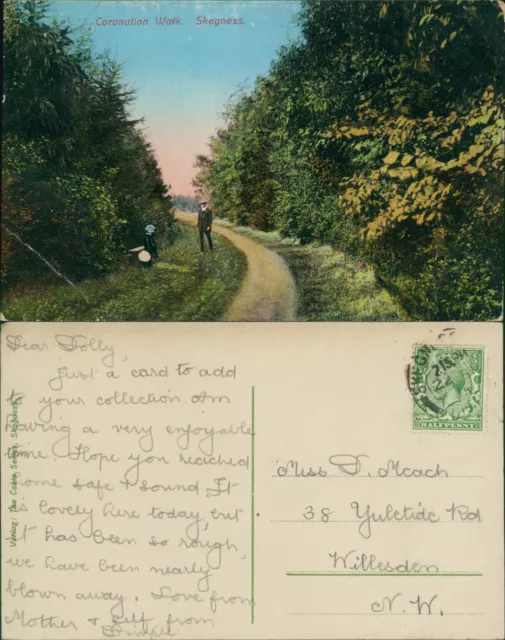 Coronation Walk. Skegness.
Dear Dolly,
Just a card to add
to your collection. Am
having a very enjoyable
time. Hope you reached
home safe & sound. It
is lovely here today, but
it has been so rough,
we have been nearly
blown away. Love from
Mother & self from
HALFPENNY
Miss D. Meach
38 Yuletide Rd
Willesden
N.W.